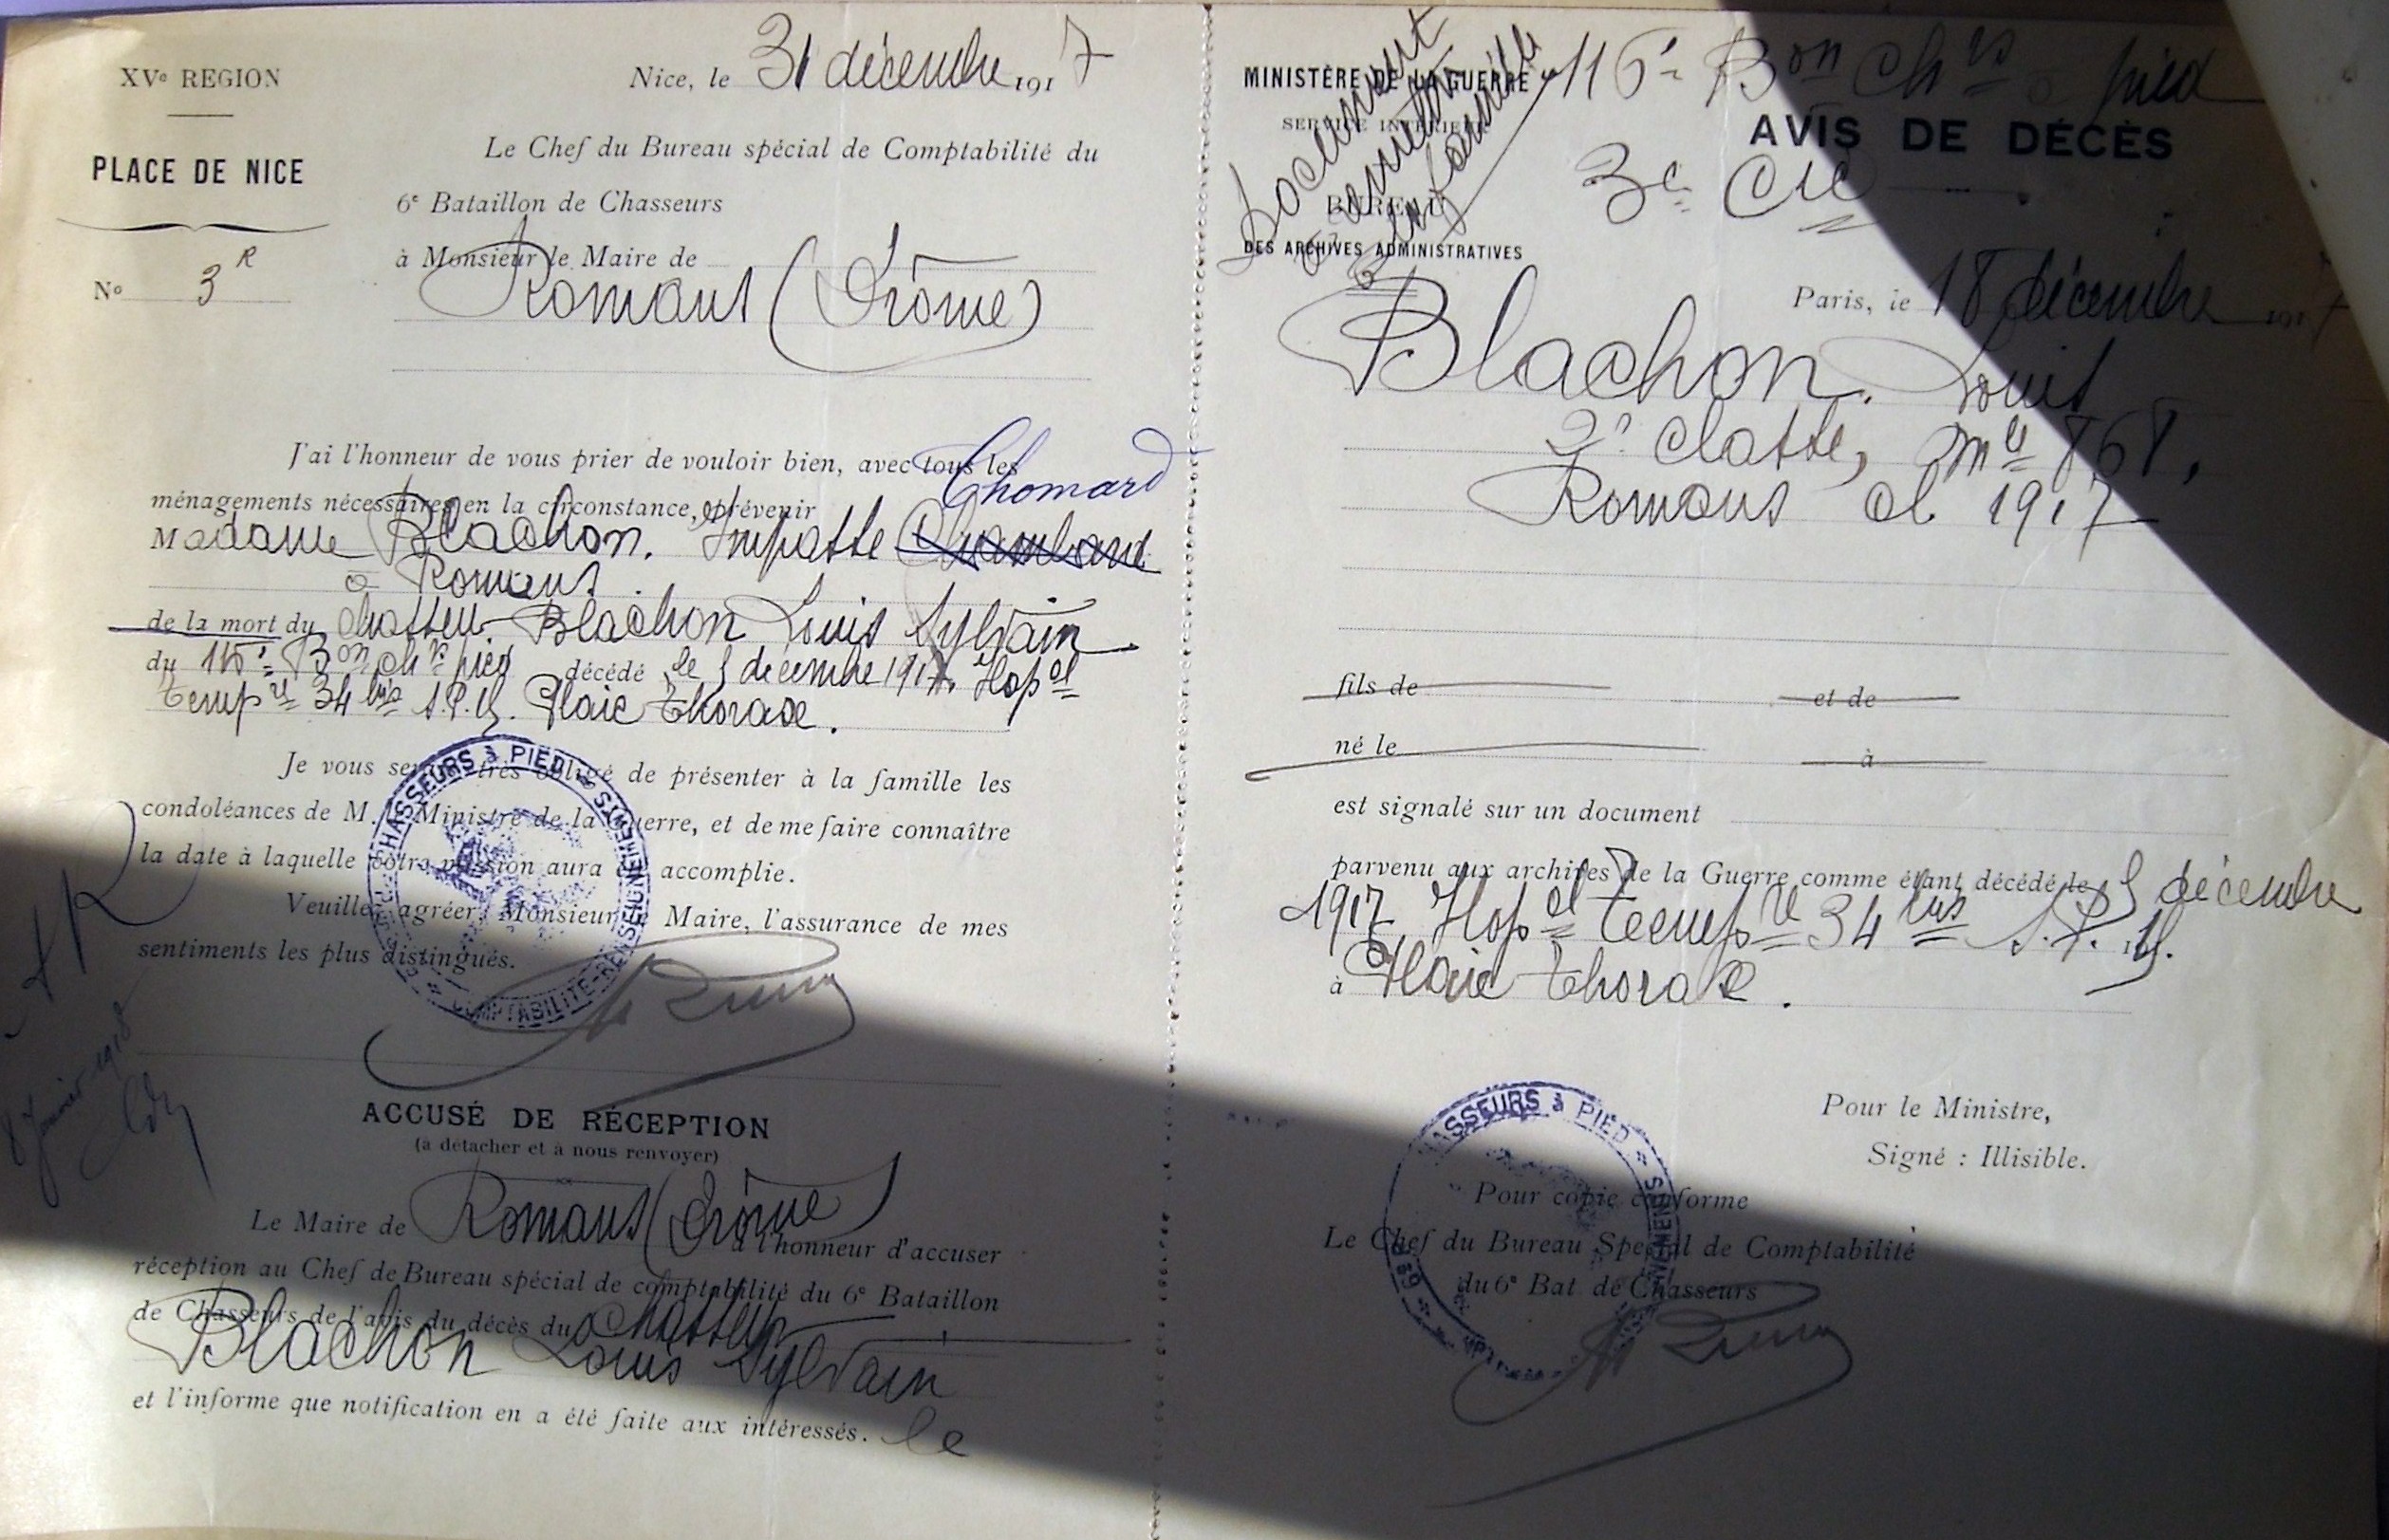 XVe REGION
PLACE DE NICE
No 3 R
Nice, le 31 décembre 1917
Le Chef du Bureau spécial de Comptabilité du
6e Bataillon de Chasseurs
à Monsieur le Maire de
Romans (Drôme)
J'ai l'honneur de vous prier de vouloir bien, avec tous les
Chomard
ménagements nécessaires en la circonstance, prévenir
Madame Blachon. Impasse Chambard
à Romans.
de la mort du chasseur Blachon Louis Sylvain
du 116e Bon chrs pied décédé le 5 décembre 1917, Hopal
tempre 34 bis S.P. Plaie thorax.
Je vous serais très obligé de présenter à la famille les
condoléances de M. le Ministre de la Guerre, et de me faire connaître
la date à laquelle votre mission aura été accomplie.
Veuillez agréer, Monsieur le Maire, l'assurance de mes
sentiments les plus distingués.
CHASSEURS à PIED
COMPTABILITÉ-RENSEIGNEMENTS
AR
8 Janvier 1918
ACCUSÉ DE RÉCEPTION
(à détacher et à nous renvoyer)
Le Maire de Romans (Drôme)
a l'honneur d'accuser
réception au Chef de Bureau spécial de comptabilité du 6e Bataillon
de Chasseurs de l'avis du décès du Chasseur
Blachon Louis Sylvain
et l'informe que notification en a été faite aux intéressés. le
MINISTÈRE DE LA GUERRE
SERVICE INTÉRIEUR
BUREAU
DES ARCHIVES ADMINISTRATIVES
Document
à remettre
à la famille
116e Bon Chrs à pied
AVIS DE DÉCÈS
3e Cie
Paris, le 18 décembre 1917
Blachon. Louis
2e classe, Mle 868,
Romans cl 1917
fils de et de
né le à
est signalé sur un document
parvenu aux archives de la Guerre comme étant décédé le 5 décembre
1917 Hopal tempre 34 bis S.P.
à Plaie thorax.
Pour le Ministre,
Signé : Illisible.
Pour copie conforme
Le Chef du Bureau Special de Comptabilité
du 6e Bat. de Chasseurs
CHASSEURS à PIED